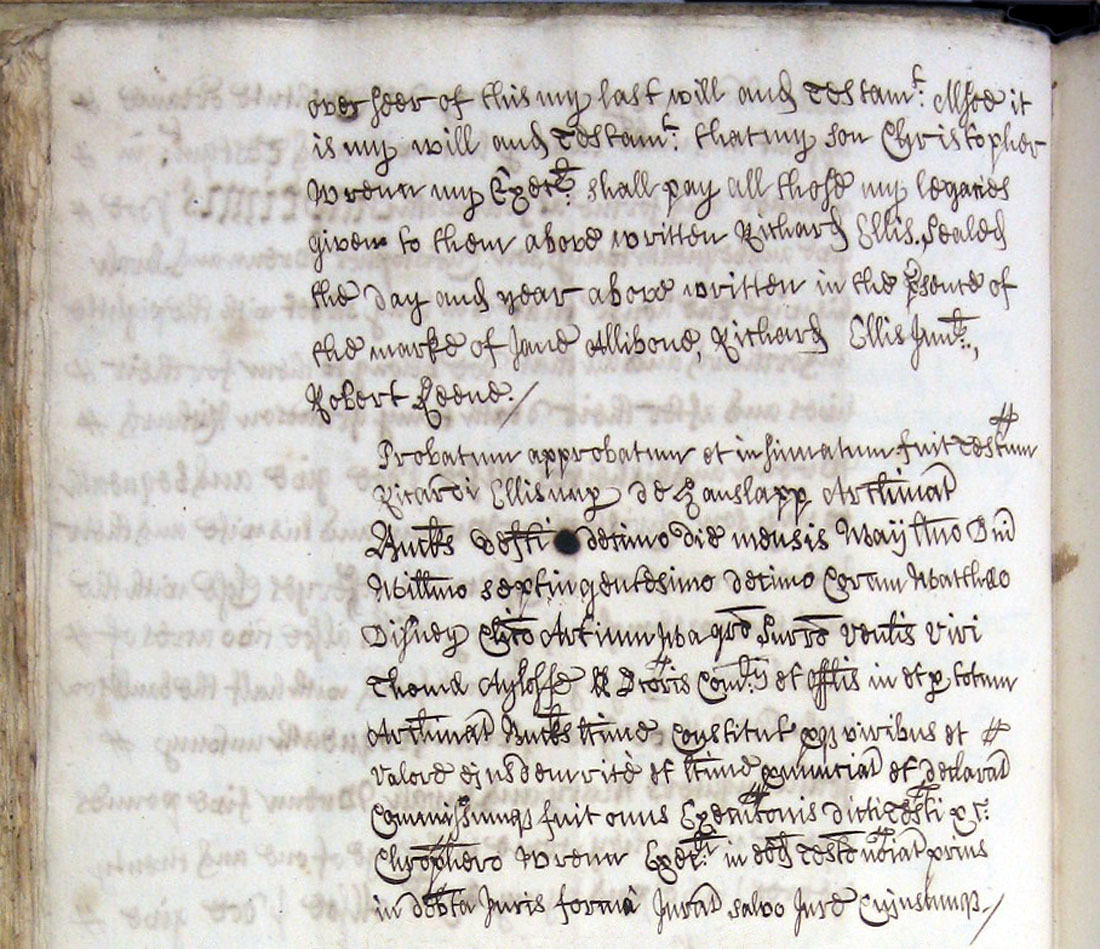 over seer of this my last will and Testamt: Allsoe it
is my will and Testamt: that my son Christopher
Wrenn my Exerr: shall pay all those my legacies
given to them above written Richard Ellis. Sealed
the day and year above written in the psence of
the marke of Jane Allibone, Richard Ellis Junr:,
Robert Keene./
Probatum approbatum et insinuatum fuit Testum
Ricardi Ellis nup de Hanslapp Archinat
Bucks decimo die mensis Maij Ano Dni
Millimo septingentesimo decimo Coram Mattheo
Disney Clico Artium Ma gro Surro Venlis Viri
Thomae Ayloffe Dcoris Comrij et Offlis in et p totum
Archinat Bucks ltime Constitut viribus et
valore ejusdem rite et ltime pnunciat et declarat
Commissumqz fuit onus Execuconis dicti Testi
Chrophero Wrenn Exerr: in eod Testo noiat prius
in debta Juris forma Jurat salvo Jure Cujuscumqz./